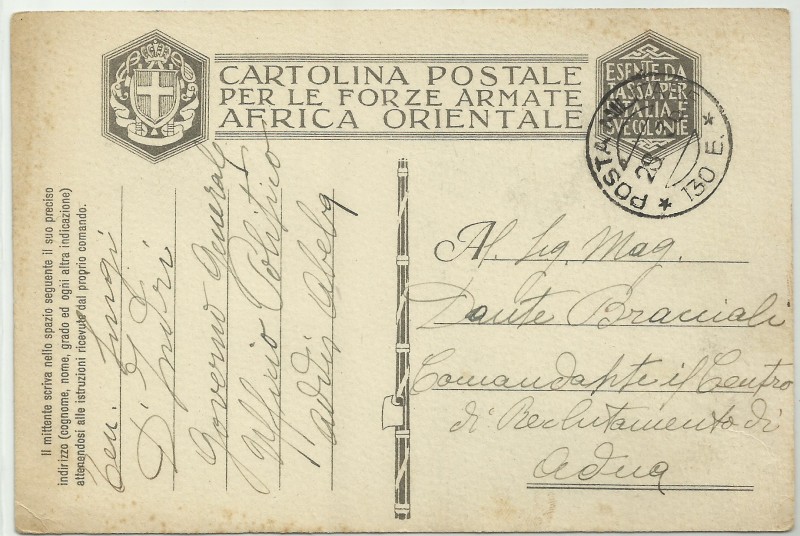 CARTOLINA POSTALE
PER LE FORZE ARMATE
AFRICA ORIENTALE
ESENTE DA
TASSA PER
ITALIA E
SUE COLONIE
POSTA MILITARE
28
* 130 E. *
Il mittente scriva nello spazio seguente il suo preciso
indirizzo (cognome, nome, grado ed ogni altra indicazione)
attenendosi alle istruzioni ricevute dal proprio comando.
Luigi
D'
Governo Generale
Ufficio Politico
Addis Abeba
Al Sig. Mag.
Dante Bracciali
Comandante il Centro
di Reclutamento di
Adua